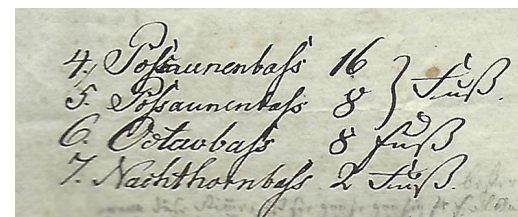 4. Posaunenbaſs 16 } Fuß.
5. Posaunenbaſs 8
6. Octavbaſs 8 Fuß
7. Nachthornbaſs 2 Fuß.